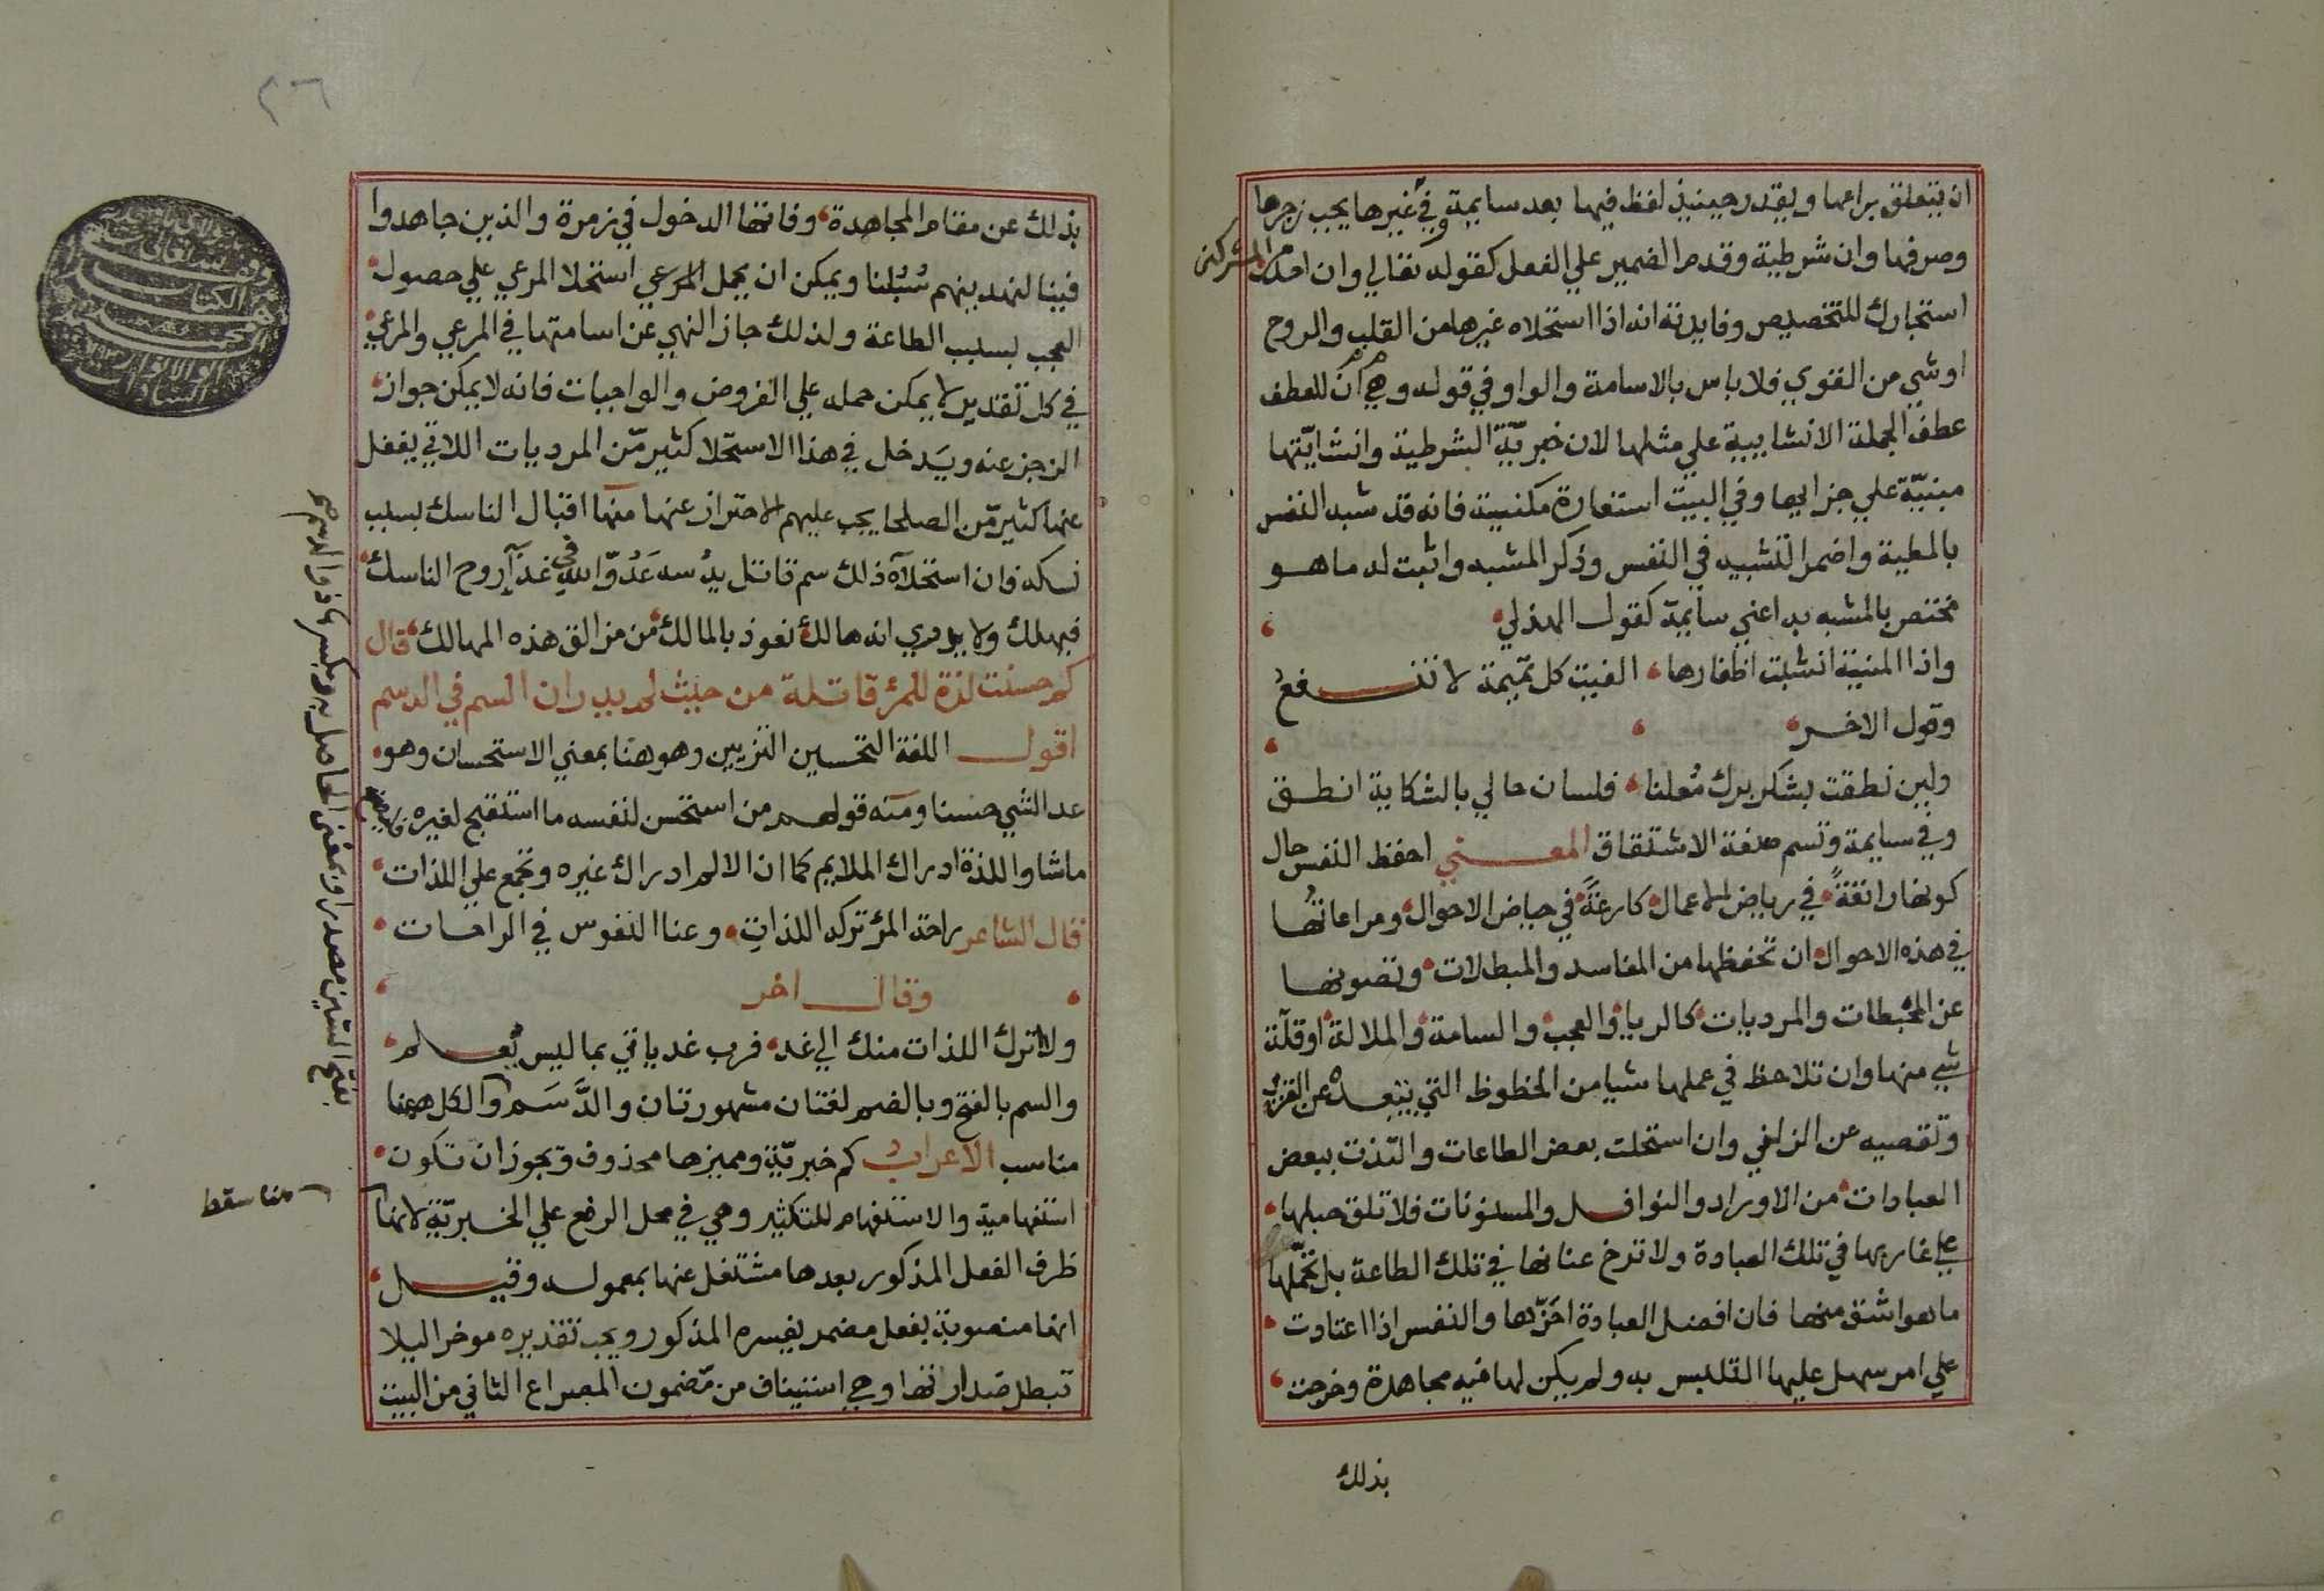 ان يتعلق براعها ويقدر حينيذ لفظ فيها بعد سايمة وفي غيرها يجب زجرها
وصرفها وان شرطية وقدم الضمير علي الفعل كقوله تعالي وان احد من المشركين
استجارك للتخصيص وفايدته انه اذا استحلاه غيرها من القلب والروح
او شي من القوي فلا باس بالاسامة والواو في قوله وهي ان للعطف
عطف الجملة الانشاييية علي مثلها لان خبريّة الشرطية وانشايّتها
مبنيّة علي جزايها وفي البيت استعارة مكنية فانه قد شبه النفس
بالمطية واضمر التشبيه في النفس وذكر المشبه واثبت له ما هو
مختص بالمشبه به اعني سايمة كقول الهذلي
واذا المنية انشبت اظفارها الفيت كل تميمة لا تنفع
وقول الاخر
ولين نطقت بشكر برك مُعلنا فلسان حالي بالشكاية انطق
وفي سايمة وتسم صنعة الاشتقاق المعني احفظ النفس حال
كونها راتعةً في رياض الاعمال كارعةً في حياض الاحوال ومراعاتُها
في هذه الاحوال ان تحفظها من المفاسد والمبطلات وتصونها
عن المحبطات والمرديات كالريا والعجب والسامة والملالة او قلّة
شي منها وان تلاحظ في عملها شيا من الحظوظ التي يبعده عن القرب
وتقصيه عن الزلفي وان استحلت بعض الطاعات والتذت ببعض
العبادات من الاوراد والنوافل والمسنونات فلا تلق حبلها
علي غاربها في تلك العبادة ولا ترخ عنانها في تلك الطاعة بل تحمّلها
ما هو اشق منها فان افضل العبادة احمزّها والنفس اذا اعتادت
علي امر سهل عليها التلبس به ولم يكن لها فيه مجاهدة وخرجت
بذلك
٢٦
بذلك عن مقام المجاهدة وفاتها الدخول في زمرة والذين جاهدوا
فينا لنهدينهم سُبُلنا ويمكن ان يحمل المرعي استحلا المرعي علي حصول
العجب بسبب الطاعة ولذلك جاز النهي عن اسامتها في المرعي والمرعي
في كل تقدير لا يمكن حمله علي الفروض والواجبات فانه لا يمكن جواز
الزجر عنه ويَدخل في هذا الاستحلا كثير مّن المرديات اللاتي يغفل
عنها كثير مّن الصلحا يجب عليهم الاحتراز عنها منها اقبال الناسك بسبب
نسكه فان استحلآه ذلك سم قاتل يدُسه عَدُوّ الله في غذآء روح الناسك
فيهلك ولا يدري انه هالك نعوذ بالمالك من مزالق هذه المهالك قال
كم حسنت لذة للمرء قاتلة من حيث لم يدر ان السم في الدسم
اقول اللغة التحسين التزيين وهو هنا بمعني الاستحسان وهو
عد الشي حسنا ومنه قولهم من استحسن لنفسه ما استقبح لغيره
ماشا واللذة ادراك الملايم كما ان الالم ادراك غيره وتجمع علي اللذات
قال الشاعر راحة المرء تركه اللذاتِ وعنا النفوس في الراحات
وقال اخر
ولا ترك اللذات منك الي غد فرب غد ياتي بما ليس يُعلم
والسم بالفتح وبالضم لغتان مشهورتان والدَّسَم والكل ههنا
مناسب الاعراب كم خبريّة ومميزها محذوف ويجوز ان تكون
استفهامية والاستفهام للتكثير وهي في محل الرفع علي الخبريّة لانها
ظرف الفعل المذكور بعدها مشتغل عنها بمعموله وقيل
انها منصوبة بفعل مضمر يفسره المذكور ويجب تقديره موخرا ليلا
تبطل صدارتها وهي استيناف من مّضمون المصراع الثاني من البيت
هنا سقط